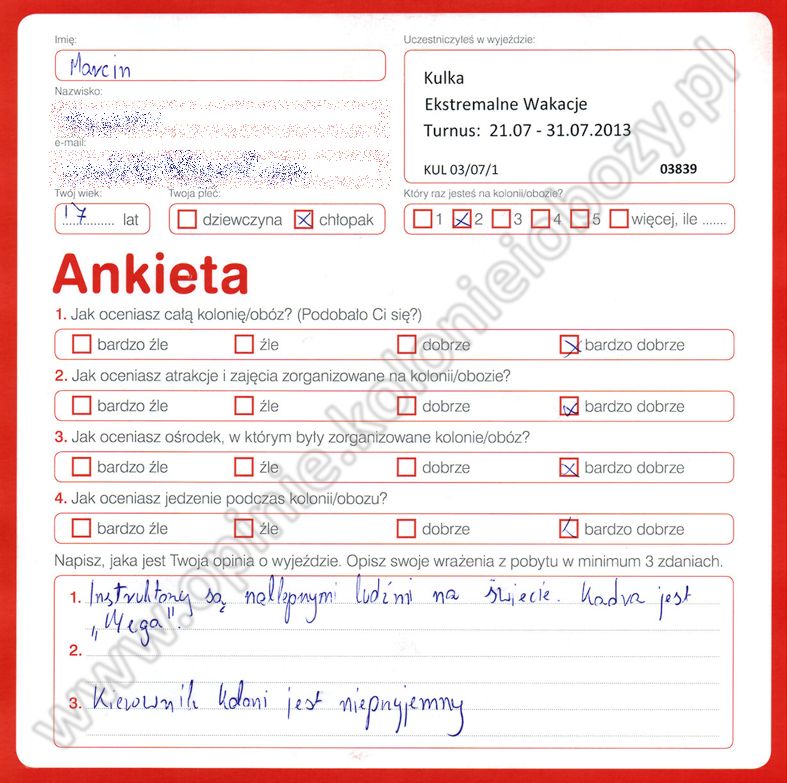 Imię:
Marcin
Uczestniczyłeś w wyjeździe:
Kulka
Ekstremalne Wakacje
Turnus: 21.07 - 31.07.2013
KUL 03/07/1 03839
Nazwisko:
e-mail:
Twój wiek:
17 lat
Twoja płeć:
dziewczyna chłopak
Który raz jesteś na kolonii/obozie?
1 2 3 4 5 więcej, ile .......
Ankieta
1. Jak oceniasz całą kolonię/obóz? (Podobało Ci się?)
bardzo źle źle dobrze bardzo dobrze
2. Jak oceniasz atrakcje i zajęcia zorganizowane na kolonii/obozie?
bardzo źle źle dobrze bardzo dobrze
3. Jak oceniasz ośrodek, w którym były zorganizowane kolonie/obóz?
bardzo źle źle dobrze bardzo dobrze
4. Jak oceniasz jedzenie podczas kolonii/obozu?
bardzo źle źle dobrze bardzo dobrze
Napisz, jaka jest Twoja opinia o wyjeździe. Opisz swoje wrażenia z pobytu w minimum 3 zdaniach.
1. Instruktorzy są najlepnymi ludźmi na świecie. Kadra jest
„Mega".
2.
3. Kierownik koloni jest nieprzyjemny
www.opinie.kolonieiobozy.pl